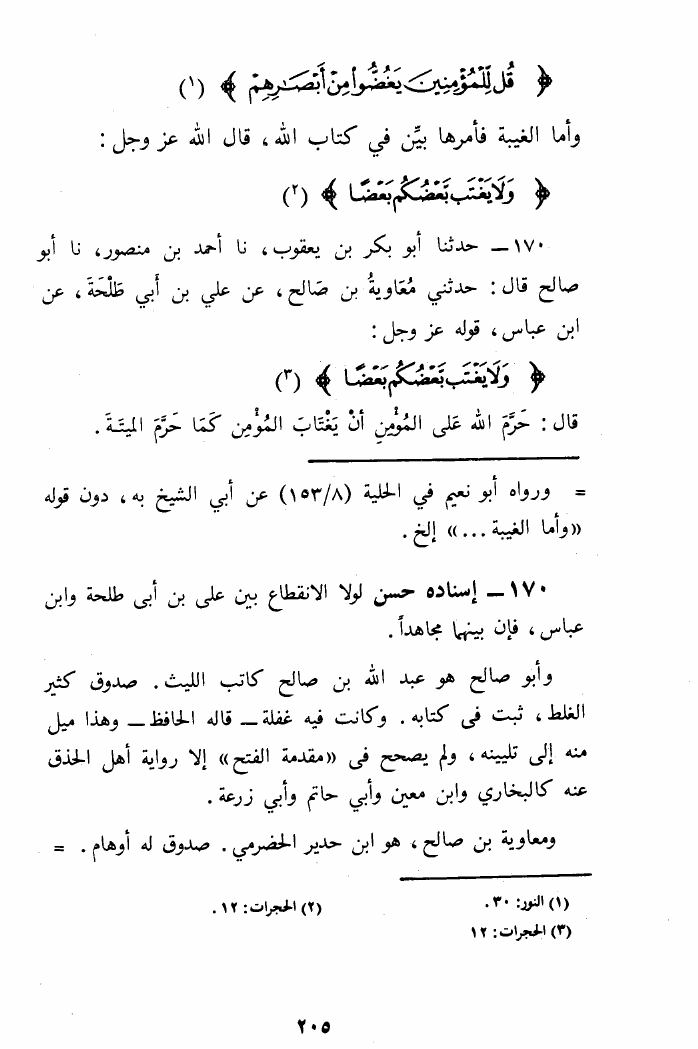 ﴿ قُل لِّلْمُؤْمِنِينَ يَغُضُّوا۟ مِنْ أَبْصَٰرِهِمْ ﴾ (١)
وأما الغيبة فأمرها بيِّن في كتاب الله، قال الله عز وجل:
﴿ وَلَا يَغْتَب بَّعْضُكُم بَعْضًا ﴾ (٢)
١٧٠ــ حدثنا أبو بكر بن يعقوب، نا أحمد بن منصور، نا أبو
صالح قال: حدثني مُعَاويةُ بن صَالح، عن علي بن أَبي طَلْحَةَ، عن
ابن عباس، قوله عز وجل:
﴿ وَلَا يَغْتَب بَّعْضُكُم بَعْضًا ﴾ (٣)
قال: حَرَّمَ الله عَلى المُؤْمِنِ أنْ يَغْتَابَ المُؤْمِن كَمَا حَرَّمَ الميتَـةَ.
= ورواه أبو نعيم في الحلية (١٥٣/٨) عن أبي الشيخ به، دون قوله
«وأما الغيبة...» إلخ.
١٧٠ــ إسناده حسن لولا الانقطاع بين على بن أبى طلحة وابن
عباس، فإن بينهما مجاهداً.
وأبو صالح هو عبد الله بن صالح كاتب الليث. صدوق كثير
الغلط، ثبت فى كتابه. وكانت فيه غفلة ــ قاله الحافظ ــ وهذا ميل
منه إلى تليينه، ولم يصحح فى «مقدمة الفتح» إلا رواية أهل الحذق
عنه كالبخاري وابن معين وأبي حاتم وأبي زرعة.
ومعاوية بن صالح، هو ابن حدير الحضرمي. صدوق له أوهام. =
(١) النور: ٣٠. (٢) الحجرات: ١٢.
(٣) الحجرات: ١٢
٢٠٥